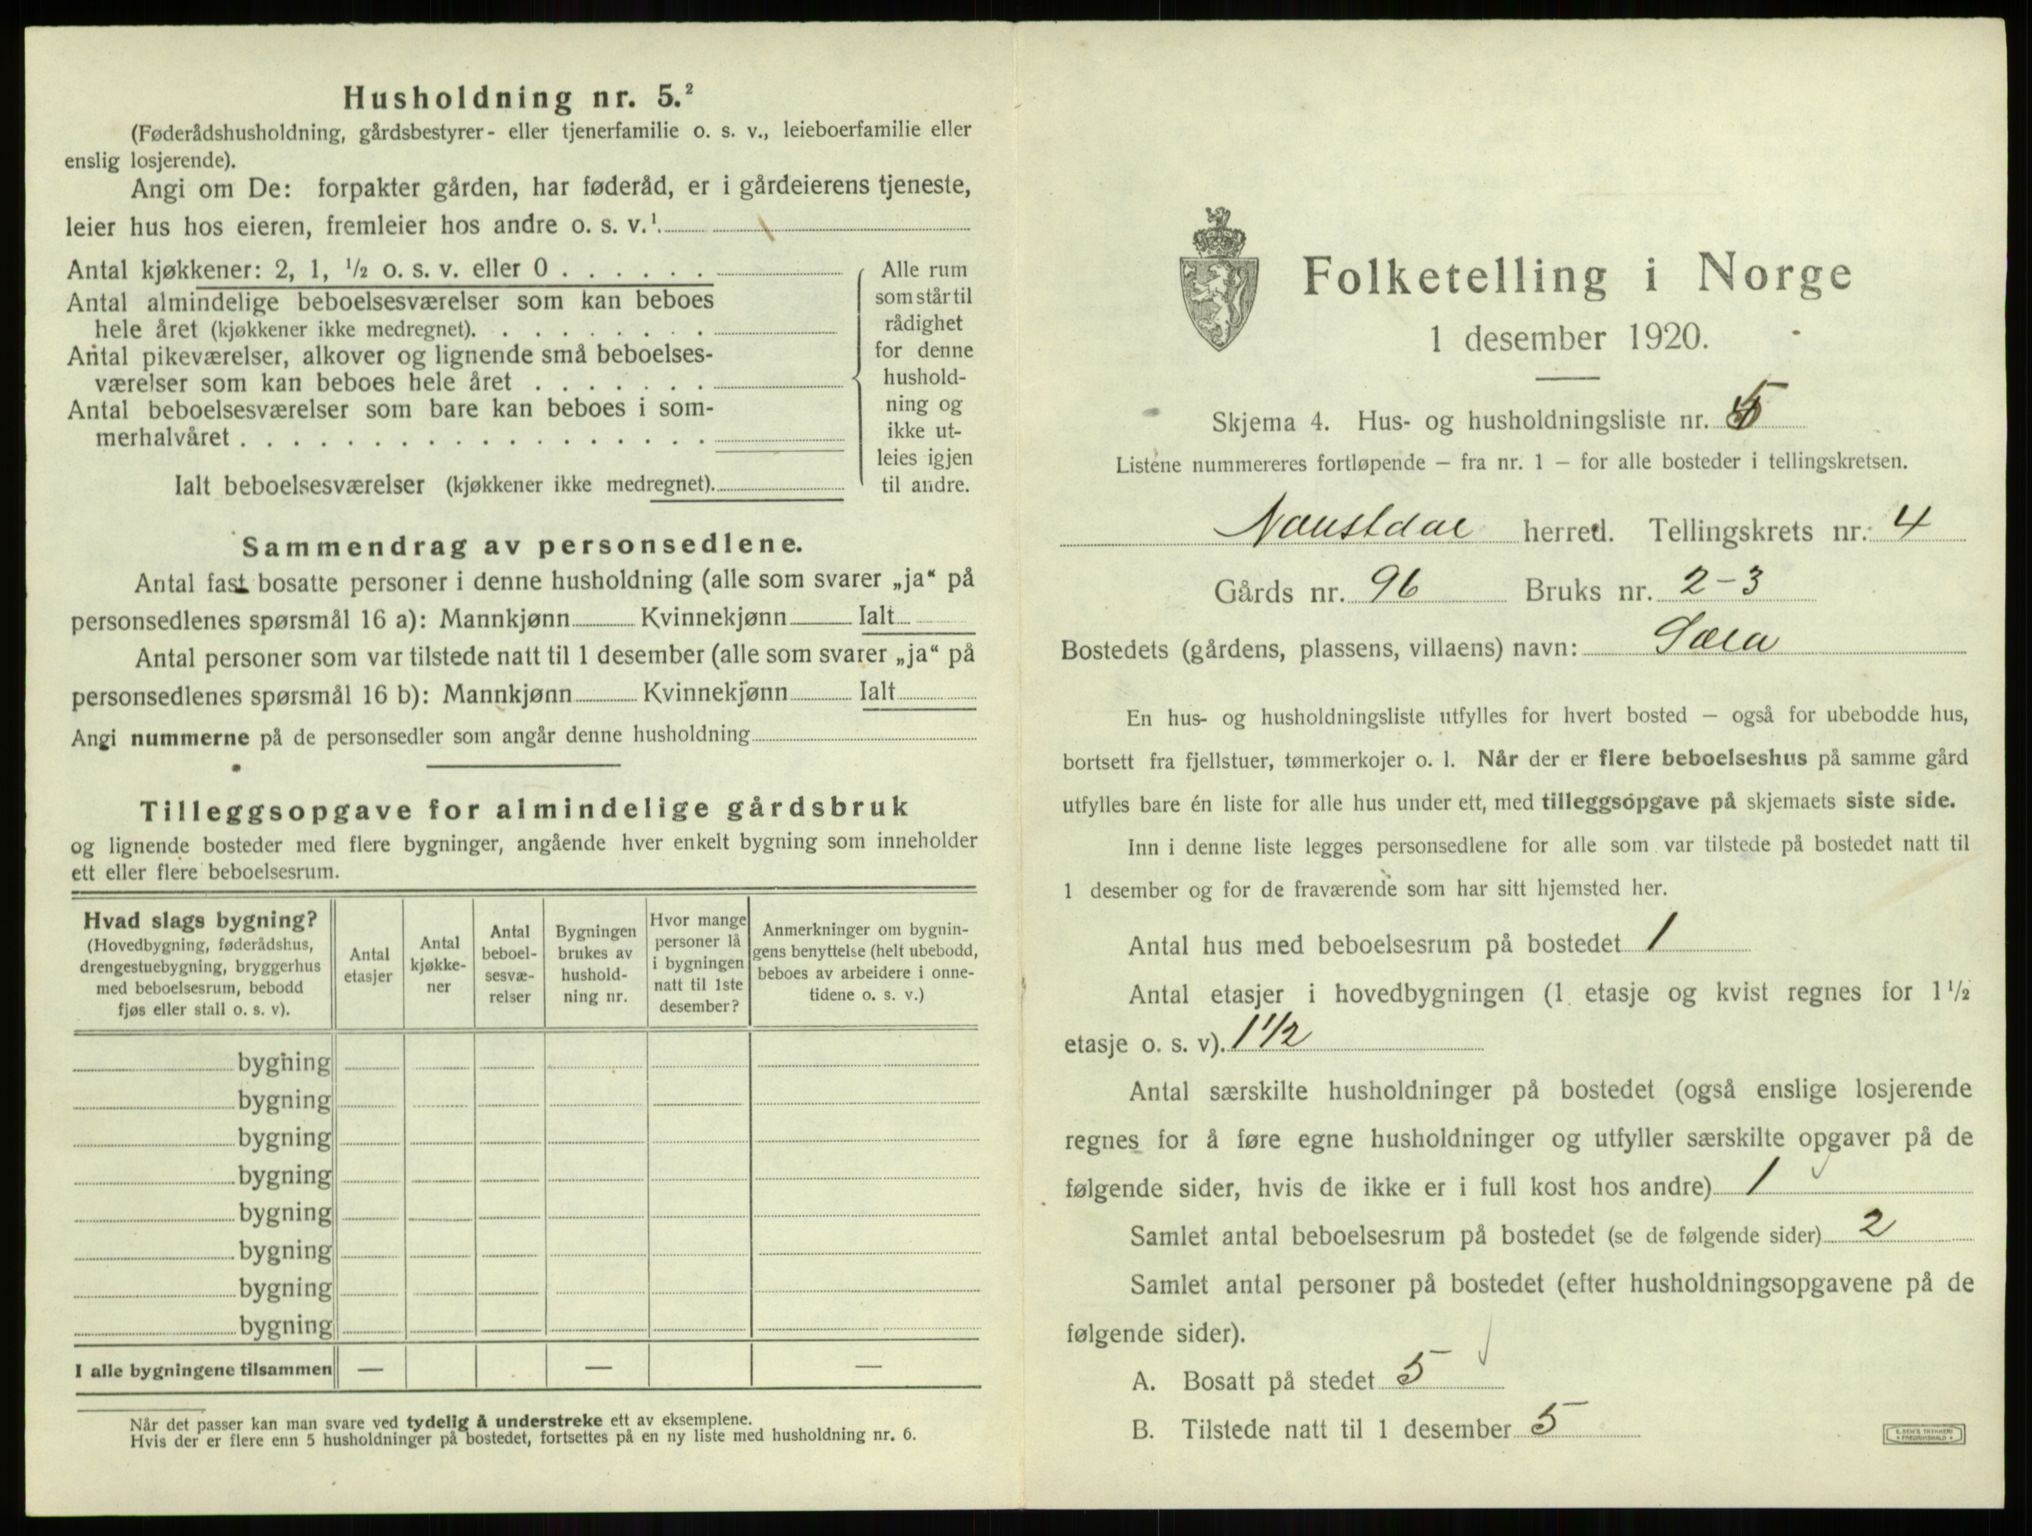 Husholdning nr. 5.²
(Føderådshusholdning, gårdsbestyrer- eller tjenerfamilie o. s. v., leieboerfamilie eller
enslig losjerende).
Angi om De: forpakter gården, har føderåd, er i gårdeierens tjeneste,
leier hus hos eieren, fremleier hos andre o. s. v.¹
Antal kjøkkener: 2, 1, ½ o. s. v. eller 0 . . . . . .
Antal almindelige beboelsesværelser som kan beboes
hele året (kjøkkener ikke medregnet). . . . . . . . .
Antal pikeværelser, alkover og lignende små beboelses-
værelser som kan beboes hele året . . . . . . .
Antal beboelsesværelser som bare kan beboes i som-
merhalvåret . . . . . . . . . . . . . . . . . .
Ialt beboelsesværelser (kjøkkener ikke medregnet).
Alle rum
som står til
rådighet
for denne
hushold-
ning og
ikke ut-
leies igjen
til andre.
Sammendrag av personsedlene.
Antal fast bosatte personer i denne husholdning (alle som svarer „ja“ på
personsedlenes spørsmål 16 a): Mannkjønn Kvinnekjønn Ialt
Antal personer som var tilstede natt til 1 desember (alle som svarer „ja“ på
personsedlenes spørsmål 16 b): Mannkjønn Kvinnekjønn Ialt
Angi nummerne på de personsedler som angår denne husholdning
Tilleggsopgave for almindelige gårdsbruk
og lignende bosteder med flere bygninger, angående hver enkelt bygning som inneholder
ett eller flere beboelsesrum.
Hvad slags bygning?
(Hovedbygning, føderådshus,
drengestuebygning, bryggerhus
med beboelsesrum, bebodd
fjøs eller stall o. s. v).
Antal
etasjer
Antal
kjøkke-
ner
Antal
beboel-
sesvæ-
relser
Bygningen
brukes av
hushold-
ning nr.
Hvor mange
personer lå
i bygningen
natt til 1ste
desember?
Anmerkninger om bygnin-
gens benyttelse (helt ubebodd,
beboes av arbeidere i onne-
tidene o. s. v.)
bygning
bygning
bygning
bygning
bygning
bygning
bygning
bygning
I alle bygningene tilsammen — — —
Når det passer kan man svare ved tydelig å understreke ett av eksemplene.
Hvis der er flere enn 5 husholdninger på bostedet, fortsettes på en ny liste med husholdning nr. 6.
Folketelling i Norge
1 desember 1920.
Skjema 4. Hus- og husholdningsliste nr. 5
Listene nummereres fortløpende — fra nr. 1 — for alle bosteder i tellingskretsen.
Naustdal herred. Tellingskrets nr. 4
Gårds nr. 96 Bruks nr. 2-3
Bostedets (gårdens, plassens, villaens) navn:
En hus- og husholdningsliste utfylles for hvert bosted — også for ubebodde hus,
bortsett fra fjellstuer, tømmerkojer o. l. Når der er flere beboelseshus på samme gård
utfylles bare én liste for alle hus under ett, med tilleggsopgave på skjemaets siste side.
Inn i denne liste legges personsedlene for alle som var tilstede på bostedet natt til
1 desember og for de fraværende som har sitt hjemsted her.
Antal hus med beboelsesrum på bostedet 1
Antal etasjer i hovedbygningen (1 etasje og kvist regnes for 1½
etasje o. s. v). 1½
Antal særskilte husholdninger på bostedet (også enslige losjerende
regnes for å føre egne husholdninger og utfyller særskilte opgaver på de
følgende sider, hvis de ikke er i full kost hos andre) 1
Samlet antal beboelsesrum på bostedet (se de følgende sider) 2
Samlet antal personer på bostedet (efter husholdningsopgavene på de
følgende sider).
A. Bosatt på stedet 5
B. Tilstede natt til 1 desember 5